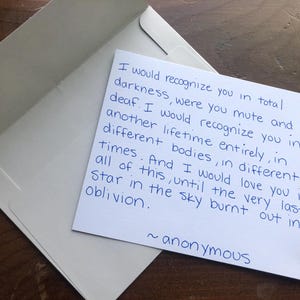 I would recognize you in total
darkness, were you mute and
deaf. I would recognize you in
another lifetime entirely, in
different bodies, in different
times. And I would love you
all of this, until the very las
star in the sky burnt out in
oblivion.
~ anonymous